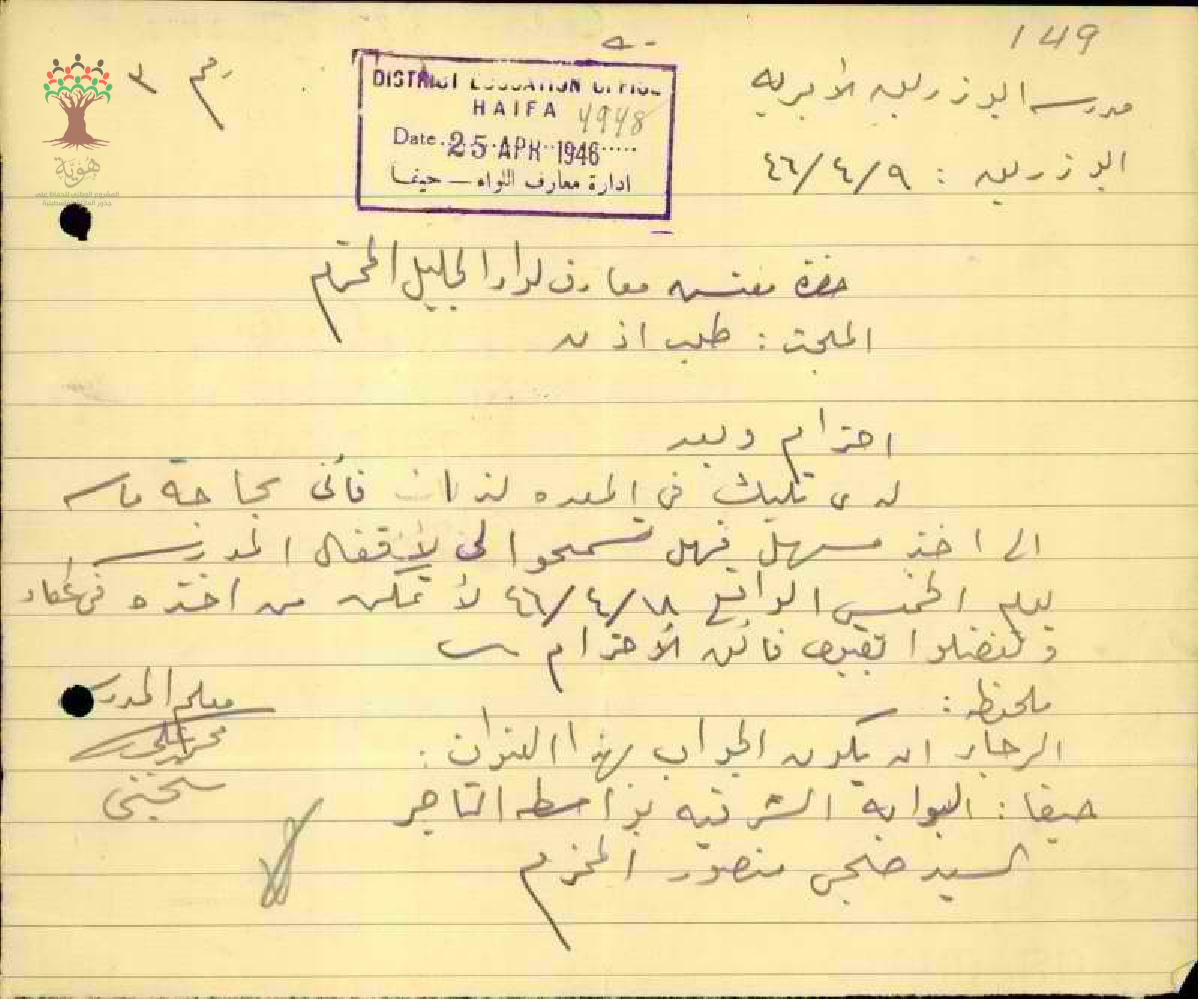 149
مدرسة ابو زريق الاميرية
رقم ٣
ابو زريق : ٤٦/٤/٩
DISTRICT EDUCATION OFFICE
HAIFA 4948
Date 25 APR 1946
ادارة معارف اللواء — حيفا
هوية
حضرة مفتش معارف لواء الجليل المحترم
المبحث : طلب اذن
احترام وبعد
لدى تلبك في المعده فأني بحاجة ماسه
الى اخذ مسهل فهل تسمحوا لي لأقفال المدرسة
يوم الخميس الواقع ٤٦/٤/١٨ لأتمكن من اخذه في عكا
وتفضلوا بقبول فائق الأحترام
معلم المدرسة
ملحظه :
الرجاء ان يكون الجواب بهذا العنوان :
حيفا : البوابة الشرقيه بواسطه التاجر
السيد منصور المحترم